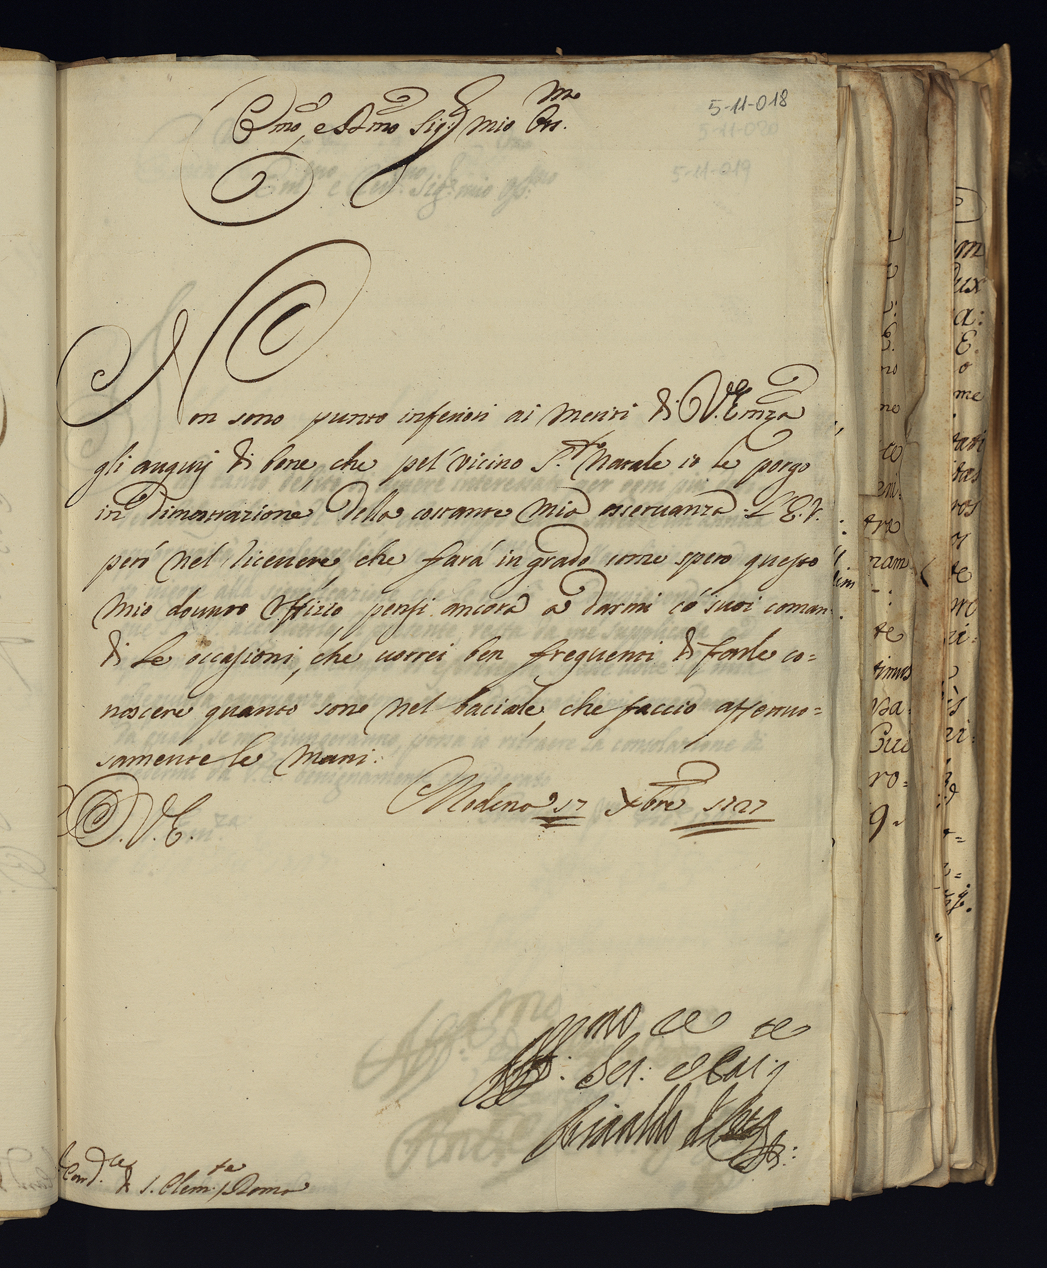 5-11-018
Emo, e Rmo Sig. mio Oss.mo
Non sono punto inferiori ai meriti di V. Emza
gli augurj di bene che pel vicino S.to Natale io le porgo
in dimostrazione della costante mia osservanza. L'E. V.
però nel ricevere, che farà in grado come spero questo
mio dovuto Uffizio, pensi ancora a darmi co' suoi coman-
di le occasioni, che vorrei ben frequenti di farle co=
noscere quanto sono nel baciale, che faccio affettuo=
samente le mani.
Modena 17 Xbre 1727
D. V. E.
Aff.mo
Ser. e
Rinaldo d'Este
Card.le di S. Clem.te Roma